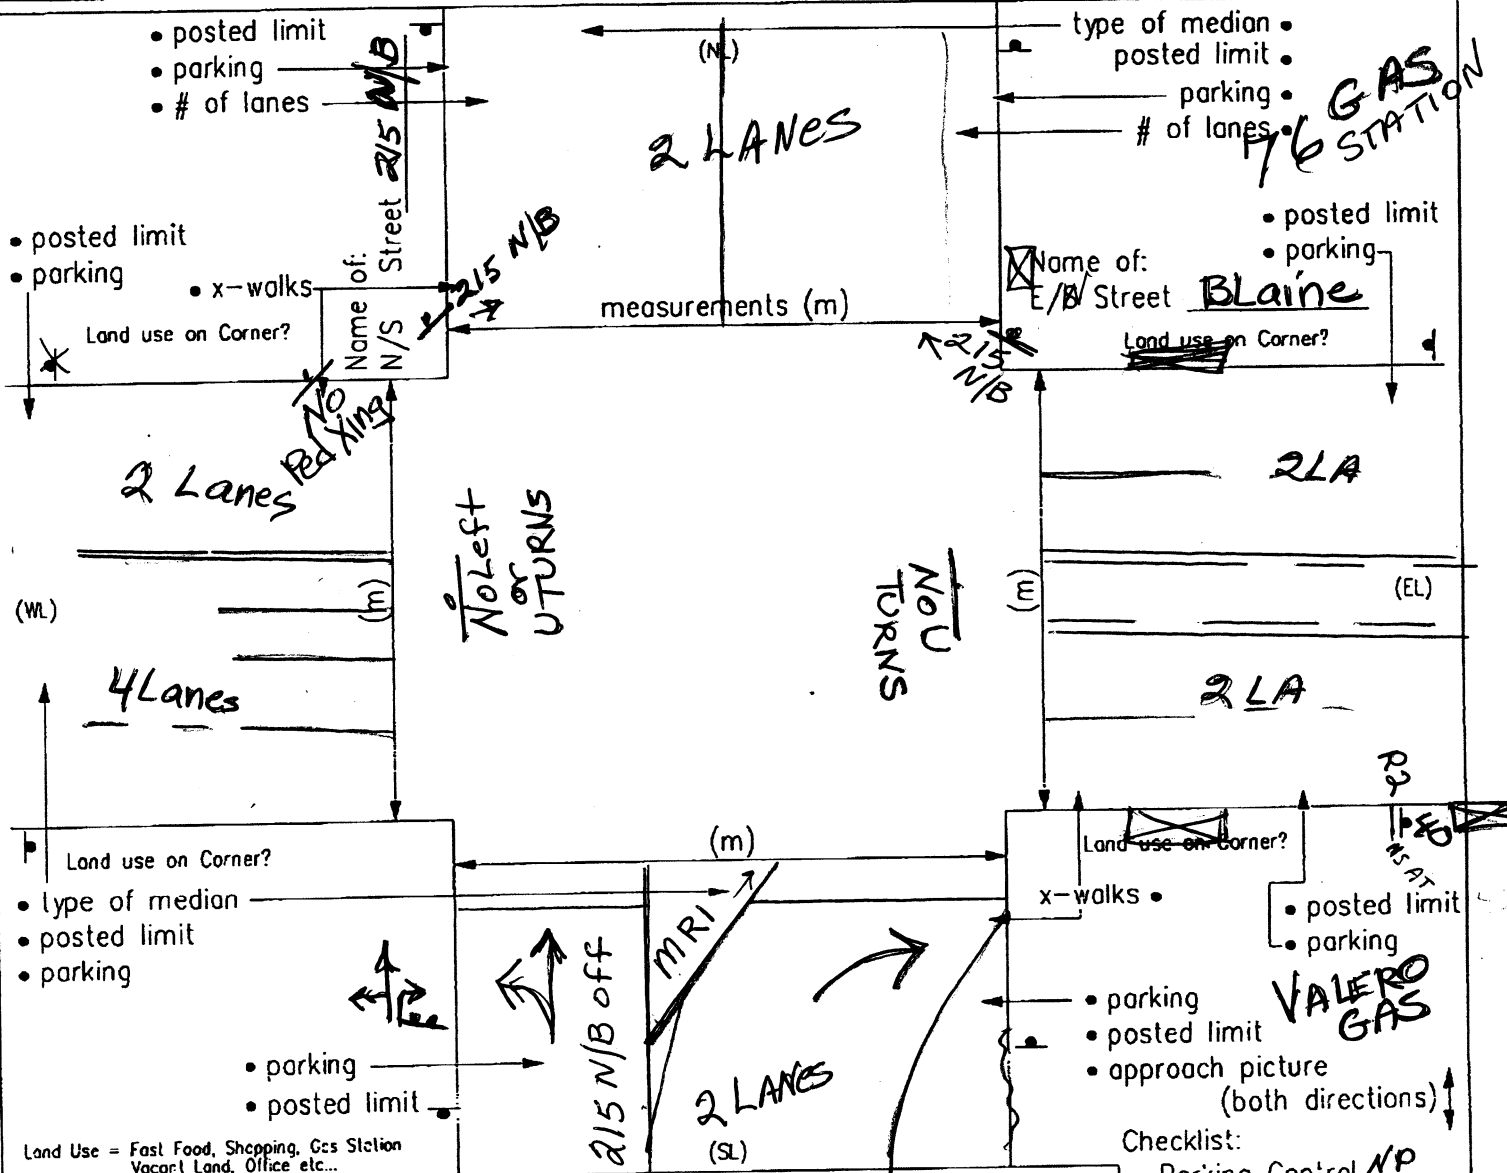 • posted limit
• parking
• # of lanes
Name of:
N/S Street 215 N/B
(NL)
2 LANES
type of median •
posted limit •
parking •
# of lanes •
76 GAS
STATION
• posted limit
• parking
• x-walks
Land use on Corner?
215 N/B
measurements (m)
215
N/B
• posted limit
• parking
Name of:
E/W Street BLaine
Land use on Corner?
No
Ped Xing
2 Lanes
(WL)
(m)
4 Lanes
No Left
or
U TURNS
NO U
TURNS
(m)
2 LA
(EL)
2 LA
R2
NS AT
Land use on Corner?
• type of median
• posted limit
• parking
• parking
• posted limit
Land Use = Fast Food, Shopping, Gas Station
Vacant Land, Office etc...
(m)
MRI
215 N/B off
2 LANES
(SL)
Land use on Corner?
x-walks •
• posted limit
• parking
VALERO
GAS
• parking
• posted limit
• approach picture
(both directions)
Checklist:
Parking Control NP